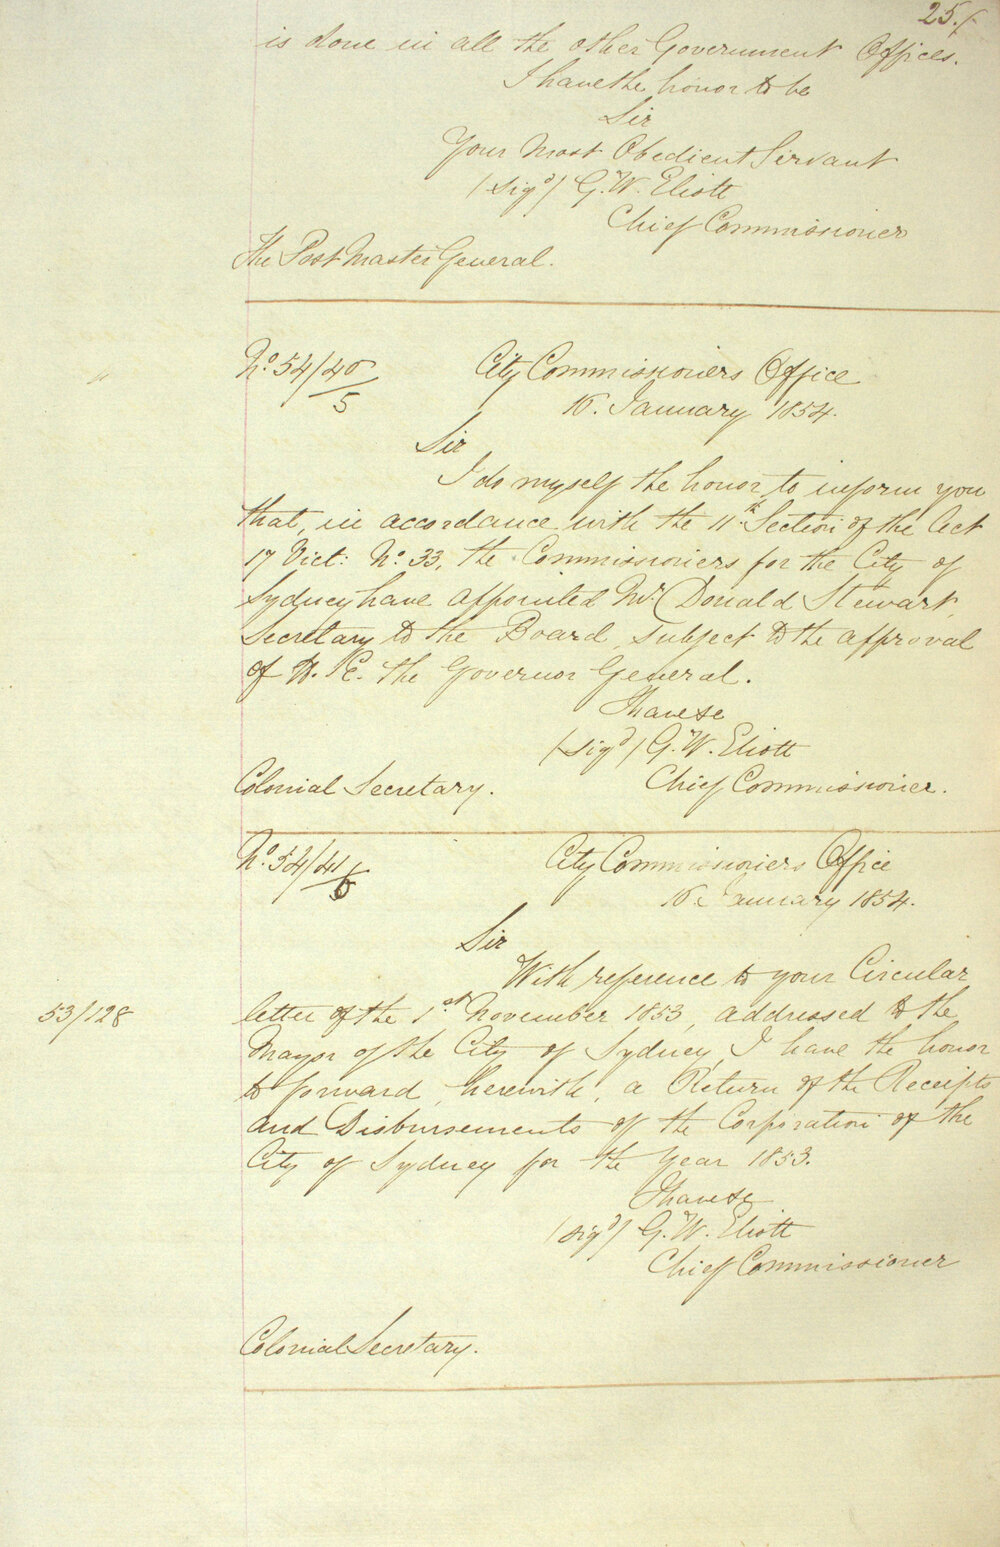 25./
is done in all the other Government Offices.
I have the honor to be
Sir
Your Most Obedient Servant
(sigd) G. W. Eliott
Chief Commissioner
The Post Master General.
No. 54/40/5
City Commissioners Office
16. January 1854.
Sir
I do myself the honor to inform you
that, in accordance with the 11th Section of the Act
17 Vict: No. 33, the Commissioners for the City of
Sydney have appointed Mr Donald Stewart,
Secretary to the Board, subject to the approval
of H. E. the Governor General.
I have &c
(sigd) G. W. Eliott
Chief Commissioner.
Colonial Secretary.
No. 54/41/5
City Commissioners Office
16 January 1854.
Sir
With reference to your Circular
53/128
letter of the 1st November 1853, addressed to the
Mayor of the City of Sydney, I have the honor
to forward, herewith, a Return of the Receipts
and Disbursements of the Corporation of the
City of Sydney for the Year 1853.
I have &c
(sigd) G. W. Eliott
Chief Commissioner
Colonial Secretary.